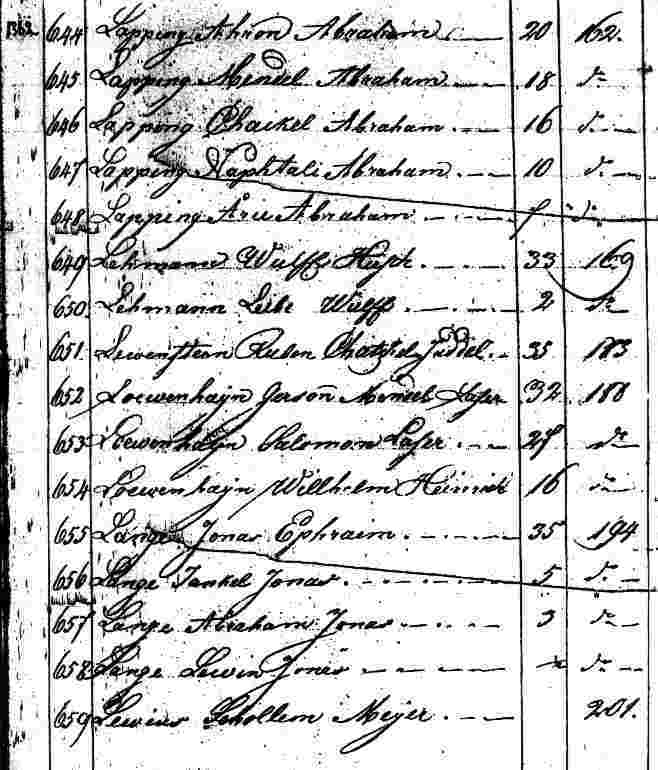 644 Lapping Ahron Abraham 20 162.
645 Lapping Mendel Abraham 18 do
646 Lapping Chackel Abraham 16 do
647 Lapping Naphtali Abraham 10 do
648 Lapping Arie Abraham do
649 Lehmann Wulff Hirsch 33 169
650. Lehmann Leibe Wulff 2 do
651. Lewenstern Ruben Chatzkel Juddel 35 183
652 Loewenhayn Gerson Mendel Laser 32 188
653 Loewenhayn Salomon Laser do
654 Loewenhayn Willhelm Heinrich 16 do
655 Lange Jonas Ephraim 35 194
656 Lange Jankel Jonas 5 do
657 Lange Abraham Jonas 3 do
658 Lange Lewin Jonas do
659 Lewius Schollem Meijer 201.